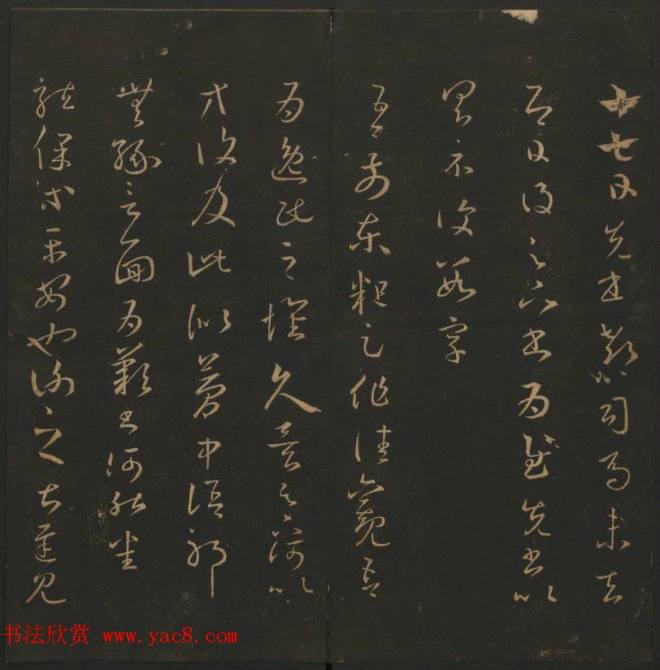 十七日先書郗司馬未去
即日得足下書為慰先書以
具示復數字
吾前東粗足作佳觀吾
為逸民之懷久矣足下何以
方復及此似夢中語耶
無緣言面為歎書何能悉
龍保等平安也謝之甚遲見
书法欣赏 www.yac8.com